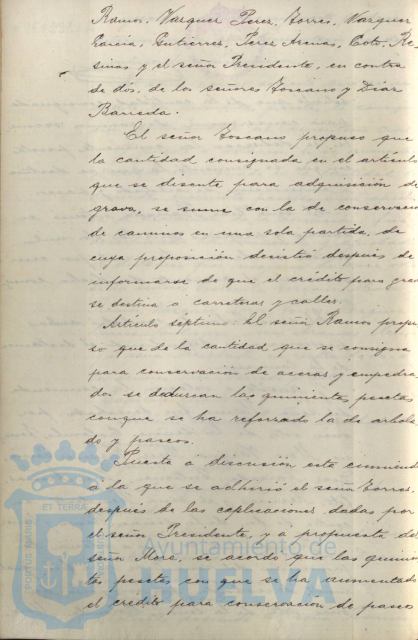 Ramos, Vázquez Pérez, Torres, Vázquez
García, Gutiérrez, Pérez Arenas, Coto, Re-
sinas y el señor Presidente, en contra
de dos, de los señores Toscano y Díaz
Barreda.
El señor Toscano propuso que
la cantidad consignada en el artículo
que se discute para adquisición de
grava, se sume con la de conservación
de caminos en una sola partida, de
cuya proposición desistió después de
informarse de que el crédito para grava
se destina á carreteras y calles.
Artículo séptimo: El señor Ramos propu-
so que de la cantidad que se consigna
para conservación de aceras y empedra-
dos se deduzcan las quinientas pesetas
conque se ha reforzado la de arbola-
do y paseos.
Puesta á discusión esta enmienda
á la que se adhirió el señor Torres
después de las explicaciones dadas por
el señor Presidente, y á propuesta del
señor Mora, se acordó que las quinien-
tas pesetas con que se ha aumentado
el crédito para conservación de paseos
PORTUS MARIS
ET TERRAE
Ayuntamiento de
HUELVA